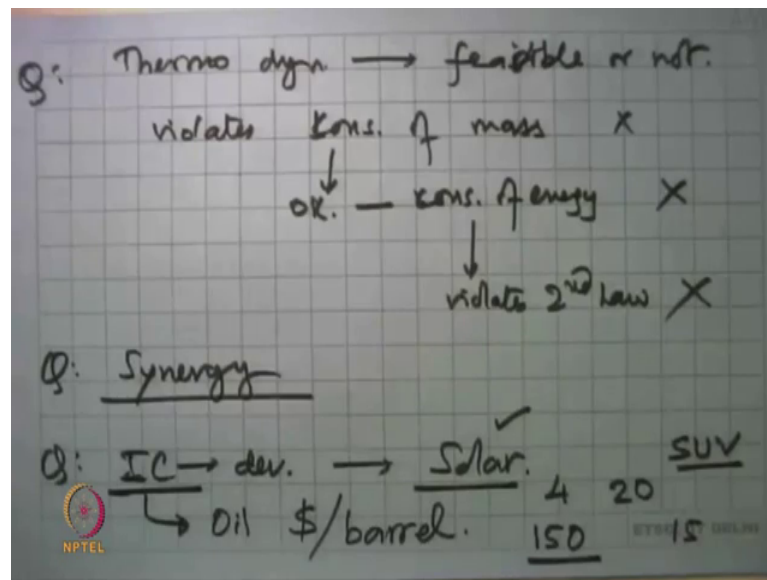 Q: Thermo dyn. → feasible or not.
violates Cons. of mass X
↓
OK. — cons. of energy X
↓
violates 2nd Law X
Q: Synergy
Q: IC → dev. → Solar. ✓ SUV
4 20
↳ Oil $/barrel. 150 15
NPTEL
DELHI